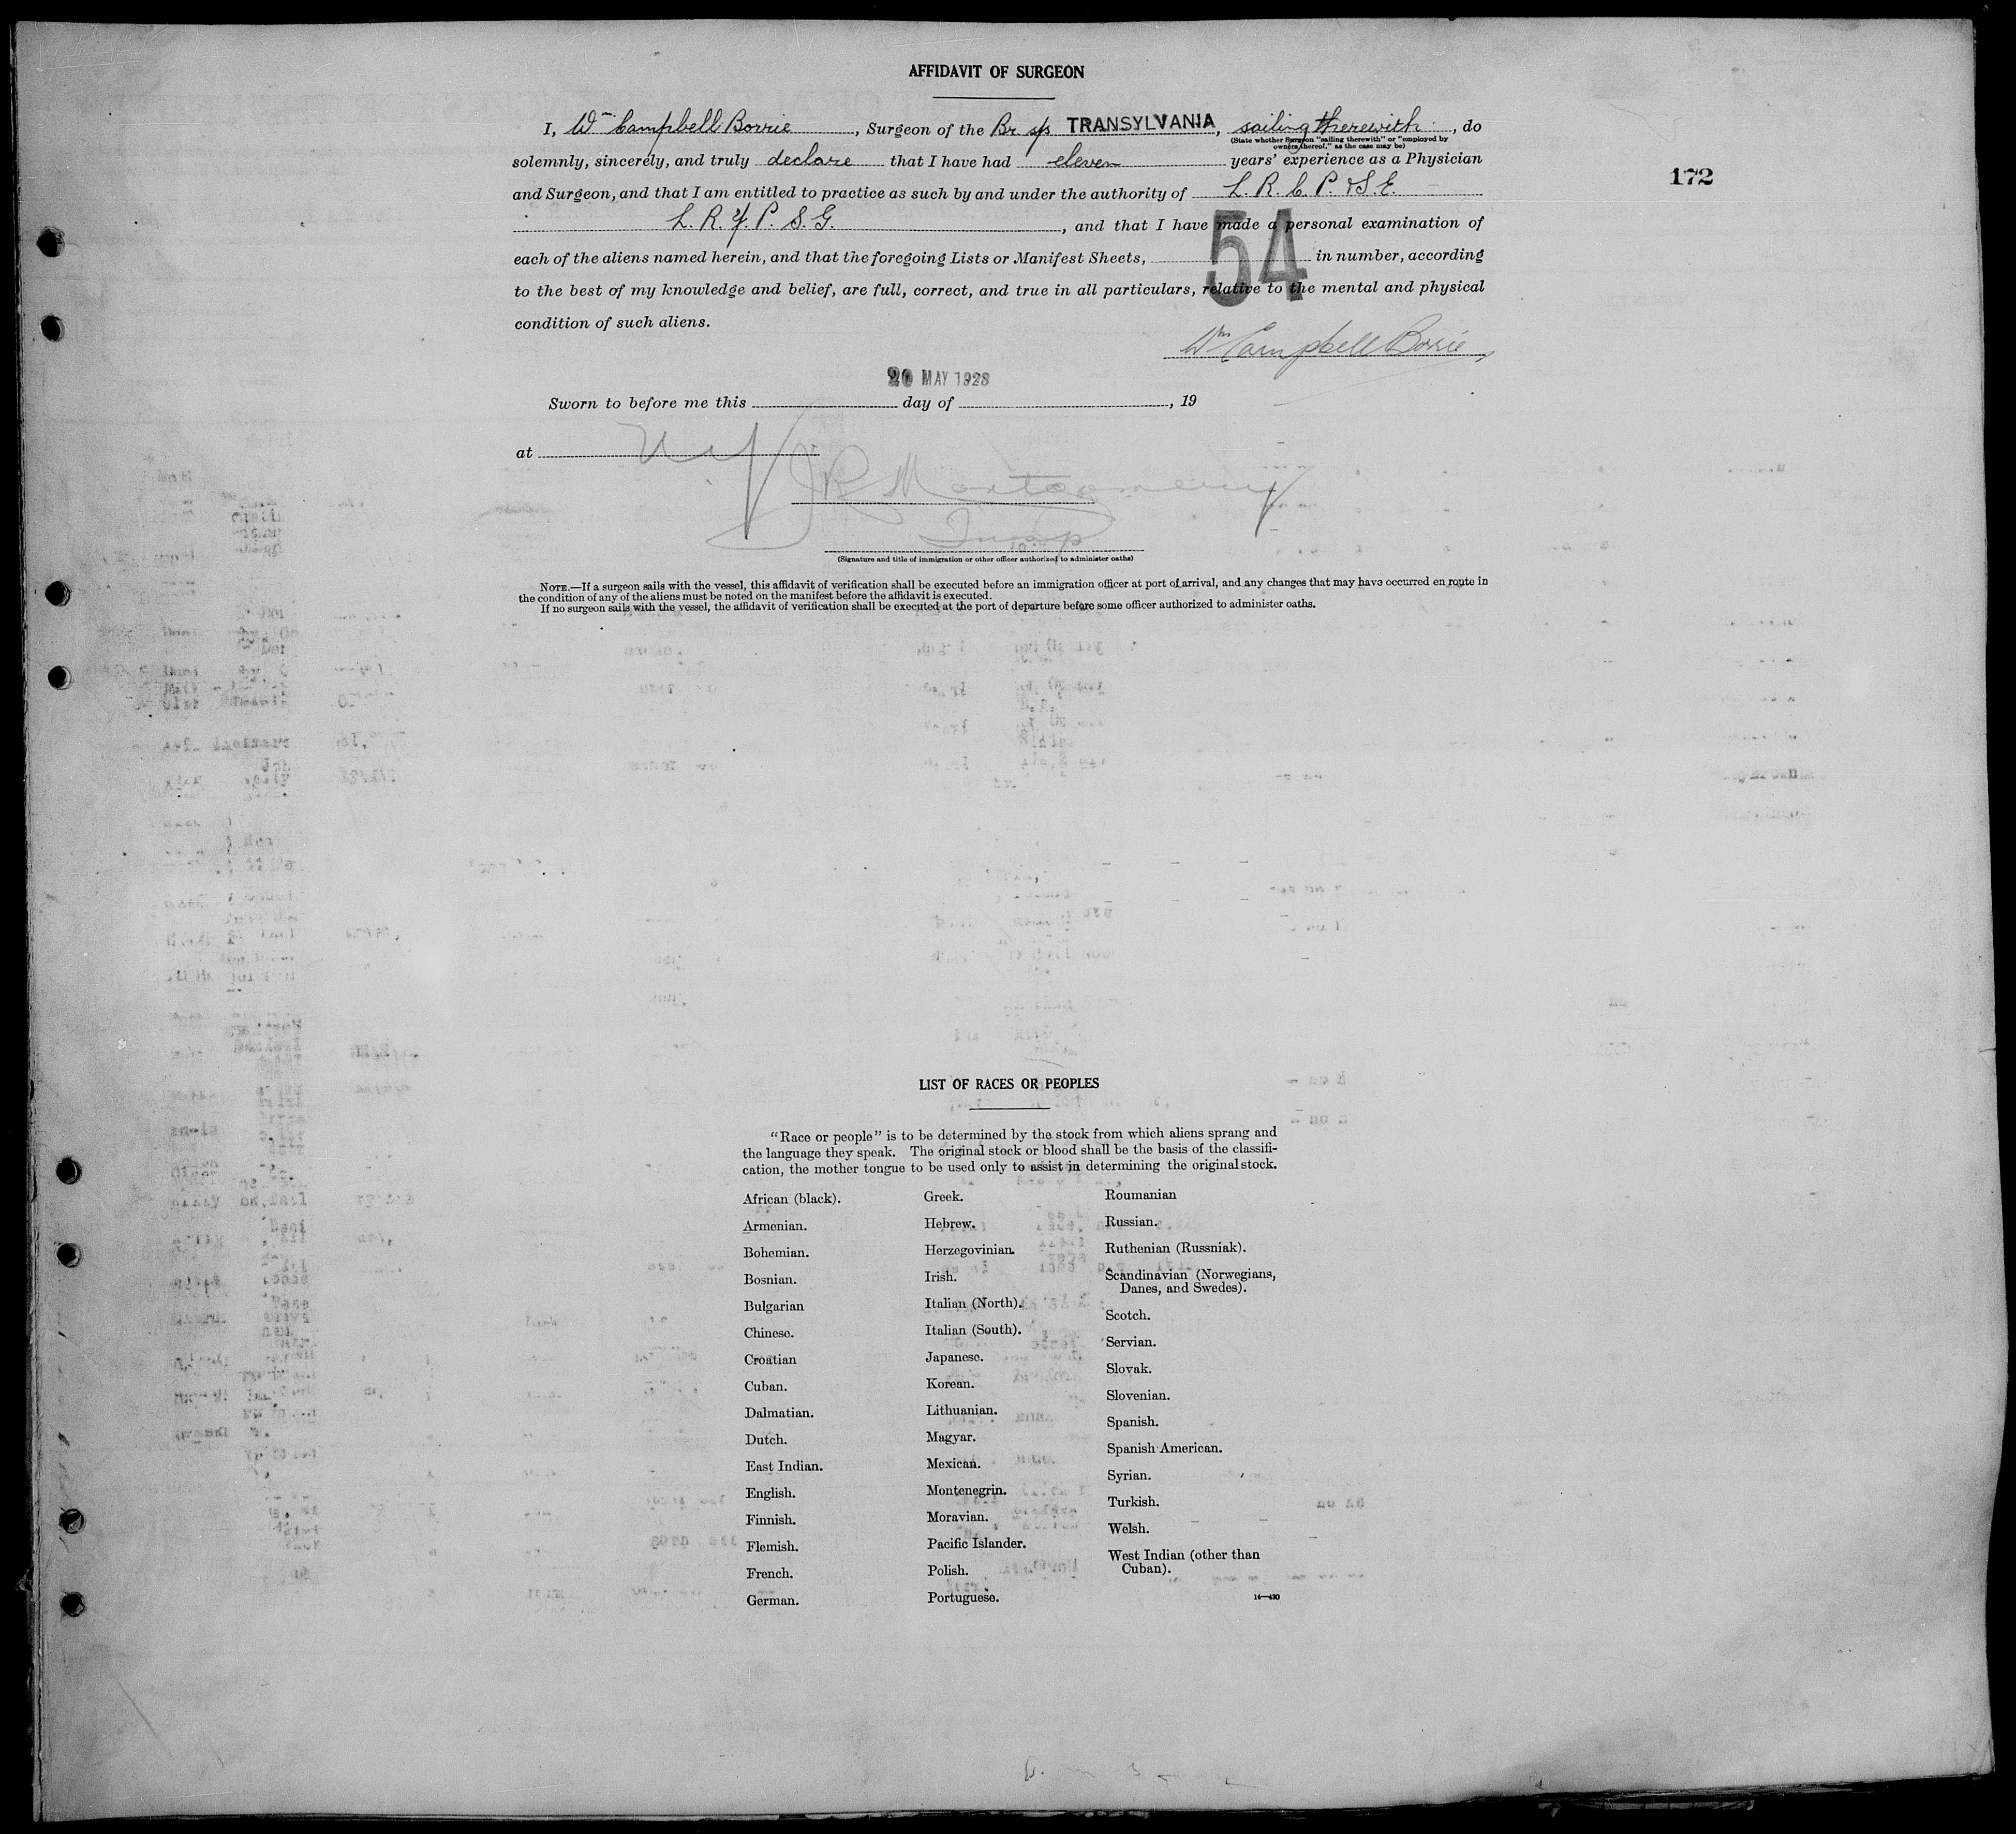 AFFIDAVIT OF SURGEON
I, Wm Campbell Borrie, Surgeon of the Br s/s TRANSYLVANIA, sailing therewith, do
(State whether Surgeon "sailing therewith" or "employed by
owners thereof," as the case may be)
solemnly, sincerely, and truly declare that I have had eleven years' experience as a Physician
172
and Surgeon, and that I am entitled to practice as such by and under the authority of L. R. C. P. & S. E.
L. R. F. P. S. G., and that I have made a personal examination of
each of the aliens named herein, and that the foregoing Lists or Manifest Sheets, 54 in number, according
to the best of my knowledge and belief, are full, correct, and true in all particulars, relative to the mental and physical
condition of such aliens.
Wm Campbell Borrie
20 MAY 1928
Sworn to before me this day of , 19
at N Y
J R Montgomery
Insp
(Signature and title of immigration or other officer authorized to administer oaths)
NOTE.—If a surgeon sails with the vessel, this affidavit of verification shall be executed before an immigration officer at port of arrival, and any changes that may have occurred en route in
the condition of any of the aliens must be noted on the manifest before the affidavit is executed.
If no surgeon sails with the vessel, the affidavit of verification shall be executed at the port of departure before some officer authorized to administer oaths.
LIST OF RACES OR PEOPLES
"Race or people" is to be determined by the stock from which aliens sprang and
the language they speak. The original stock or blood shall be the basis of the classifi-
cation, the mother tongue to be used only to assist in determining the original stock.
African (black).
Armenian.
Bohemian.
Bosnian.
Bulgarian
Chinese.
Croatian
Cuban.
Dalmatian.
Dutch.
East Indian.
English.
Finnish.
Flemish.
French.
German.
Greek.
Hebrew.
Herzegovinian.
Irish.
Italian (North).
Italian (South).
Japanese.
Korean.
Lithuanian.
Magyar.
Mexican.
Montenegrin.
Moravian.
Pacific Islander.
Polish.
Portuguese.
Roumanian
Russian.
Ruthenian (Russniak).
Scandinavian (Norwegians,
Danes, and Swedes).
Scotch.
Servian.
Slovak.
Slovenian.
Spanish.
Spanish American.
Syrian.
Turkish.
Welsh.
West Indian (other than
Cuban).
14—430